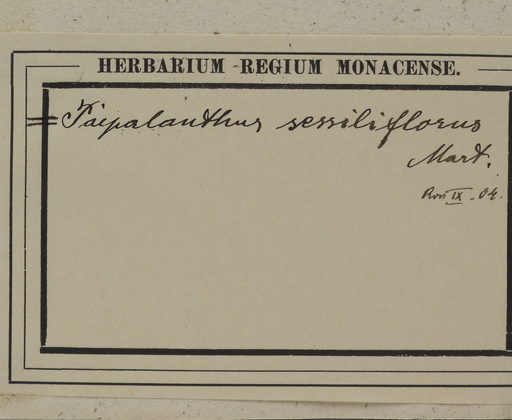 HERBARIUM REGIUM MONACENSE.
= Paepalanthus sessiliflorus
Mart.
IX. 04.